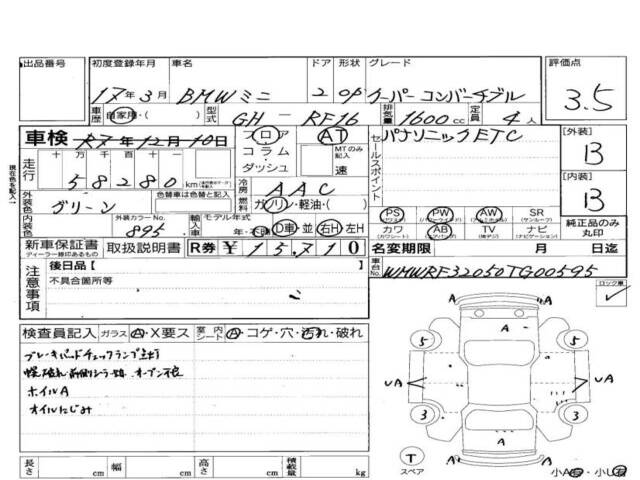 出品番号 初度登録年月 車名 ドア 形状 グレード 評価点
17年3月 BMWミニ 2 OP クーパーコンバーチブル 3.5
車歴 自家用・( ) 型式 GH - RF16 排気量 1600cc 定員 4人
車検 R7年12月10日 フロア・コラム・ダッシュ AT MTのみ記入 速
セールスポイント パナソニックETC
[外装] B
走行 十万 万 千 百 十 一
58280 km
[内装] B
冷房 AAC
外装色 グリーン 色替車は色替と記入 燃料 ガソリン・軽油・( )
PS PW AW SR
(パワーウィンド) (サンルーフ)
内装色 外装カラーNo. 895 輸入車 モデル年式 年 D車・並 右H 左H
カワ AB TV ナビ
(カワシート) (エアバッグ) (TV付デジ) (ナビゲーション)
純正品のみ丸印
新車保証書 取扱説明書 R券 ¥15,710 名変期限 月 日迄
ディーラー捺印あるもの
注意事項 後日品[ ]
不具合箇所等
車台No. WMWRF32050TG00595
ロック車 ✓
検査員記入 ガラス A・X要ス 室内シート A・コゲ・穴・汚れ・破れ
ブレーキパッドチェックランプ点灯
ホイルA
オイルにじみ
A A
5 5
UA A UA
3 3
A A
T
スペア
長さ cm 幅 cm 高さ cm 積載量 kg
現在色を記入